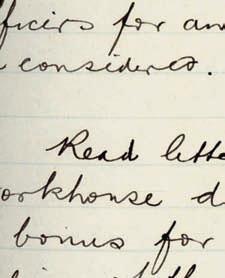 fficers for an
considered.
Read lette
orkhouse d
bonus for